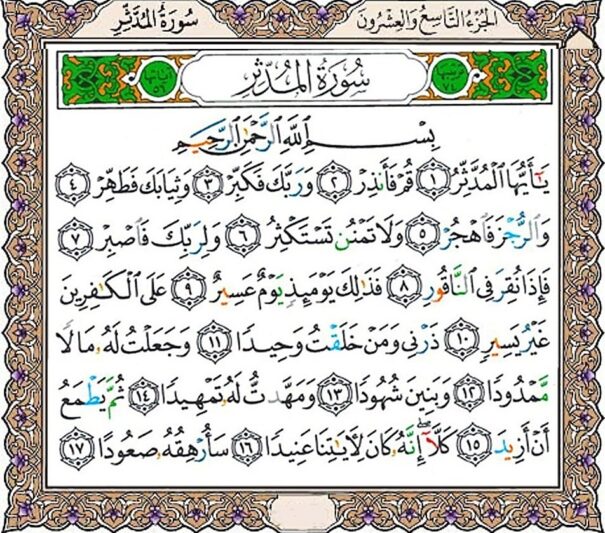 الجُزءُ التَّاسِعُ وَالعِشْرُون سُورَةُ المُدَّثِّر
ترتيبها ٧٤ سُورَةُ المُدَّثِر آياتها ٥٦
بِسْمِ اللَّهِ الرَّحْمَٰنِ الرَّحِيمِ
يَٰٓأَيُّهَا الْمُدَّثِّرُ ١ قُمْ فَأَنذِرْ ٢ وَرَبَّكَ فَكَبِّرْ ٣ وَثِيَابَكَ فَطَهِّرْ ٤
وَالرُّجْزَ فَاهْجُرْ ٥ وَلَا تَمْنُن تَسْتَكْثِرُ ٦ وَلِرَبِّكَ فَاصْبِرْ ٧
فَإِذَا نُقِرَ فِي النَّاقُورِ ٨ فَذَٰلِكَ يَوْمَئِذٍ يَوْمٌ عَسِيرٌ ٩ عَلَى الْكَٰفِرِينَ
غَيْرُ يَسِيرٍ ١٠ ذَرْنِي وَمَنْ خَلَقْتُ وَحِيدًا ١١ وَجَعَلْتُ لَهُۥ مَالًا
مَّمْدُودًا ١٢ وَبَنِينَ شُهُودًا ١٣ وَمَهَّدتُّ لَهُۥ تَمْهِيدًا ١٤ ثُمَّ يَطْمَعُ
أَنْ أَزِيدَ ١٥ كَلَّآ ۖ إِنَّهُۥ كَانَ لِآيَٰتِنَا عَنِيدًا ١٦ سَأُرْهِقُهُۥ صَعُودًا ١٧